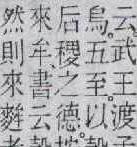 云武王渡
烏五至以穀
后稷之德
來牟書云穀
然則來麰